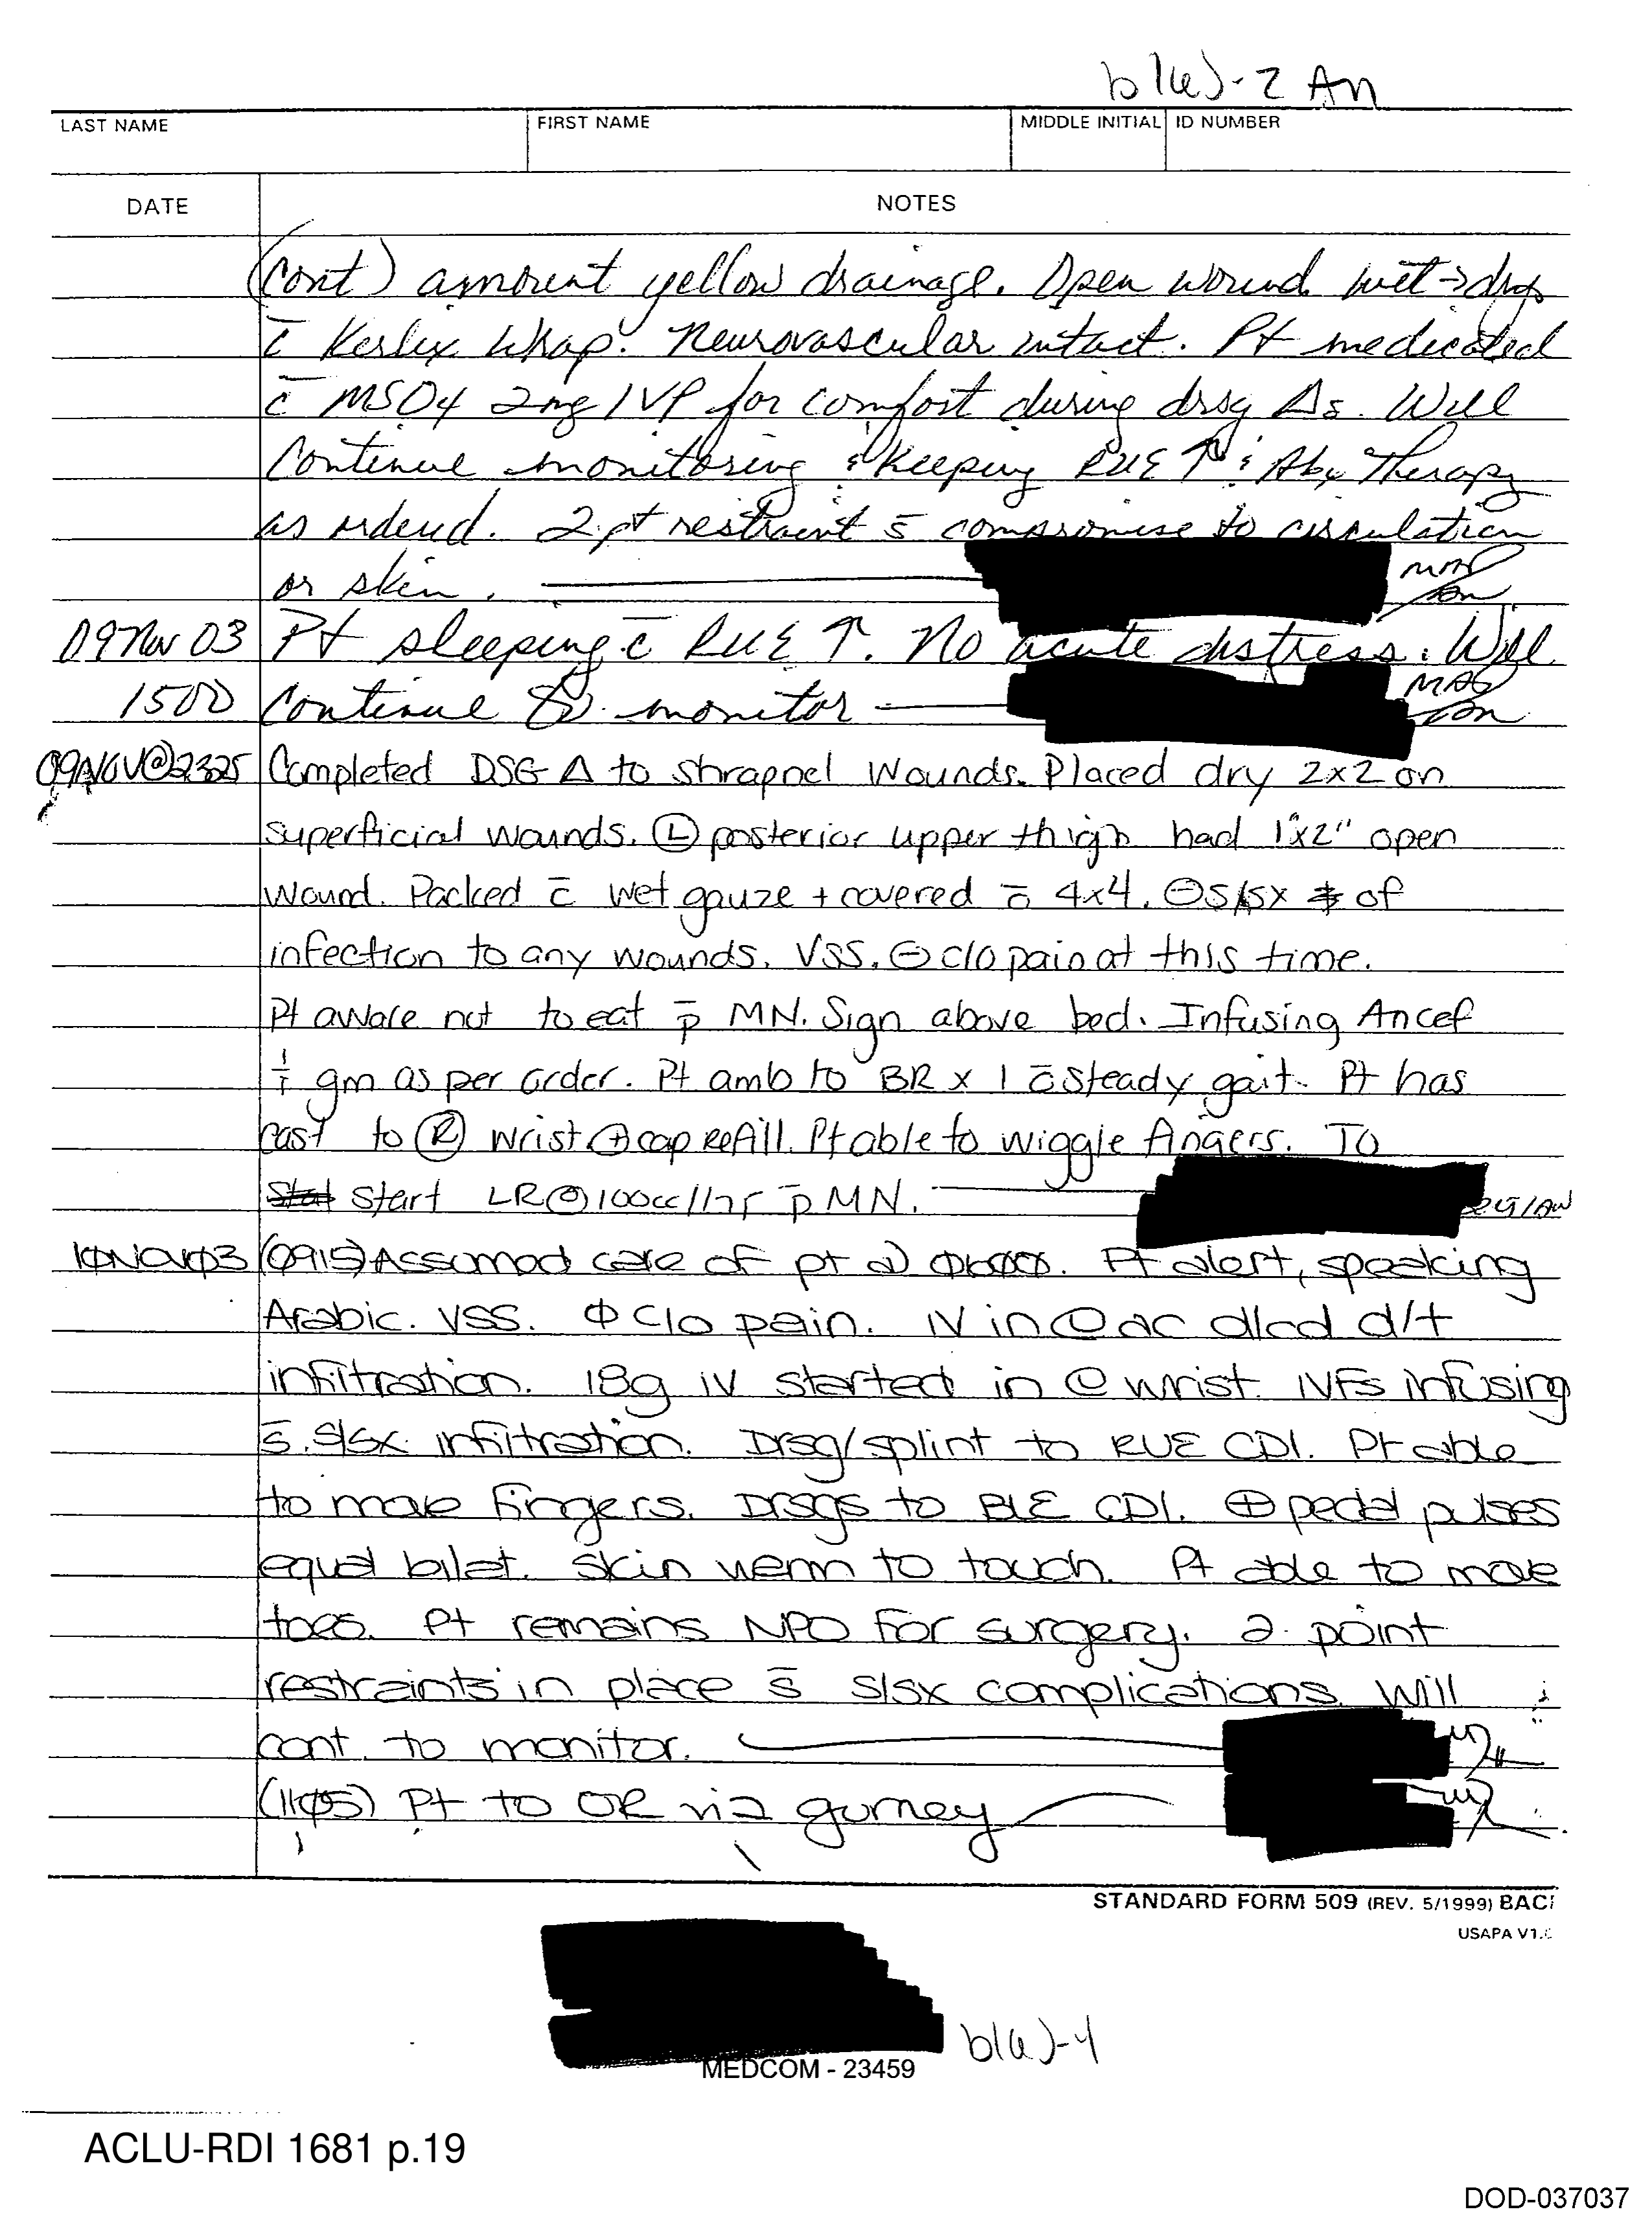 b(6)-2 An
LAST NAME FIRST NAME MIDDLE INITIAL ID NUMBER
DATE NOTES
(Cont) amount yellow drainage. Open wound wet→dry
c̄ Kerlix Wrap. Neurovascular intact. Pt medicated
c̄ MSO4 2mg IVP for comfort during drsg Δs. Will
Continue monitoring & Keeping RUE ↑ & Abx Therapy
as ordered. 2 pt restraint s̄ compromise to circulation
or skin.
09 Nov 03 Pt sleeping c̄ RUE ↑. No acute distress. Will
1500 Continue to monitor
09NOV@2325 Completed DSG Δ to shrapnel wounds. Placed dry 2x2 on
superficial wounds. Ⓛ posterior upper thigh had 1"x2" open
wound. Packed c̄ wet gauze + covered c̄ 4x4. ⊖ S/SX of
infection to any wounds. VSS. ⊖ c/o pain at this time.
Pt aware not to eat p̄ MN. Sign above bed. Infusing Ancef
ī gm as per order. Pt amb to BR x 1 c̄ steady gait. Pt has
cast to Ⓡ wrist ⊕ cap refill. Pt able to wiggle fingers. To
start LR @ 100cc/hr p̄ MN.
10NOV03 (0915) Assumed care of pt @ 0600. Pt alert, speaking
Arabic. VSS. Φ c/o pain. IV in Ⓛ ac d/cd d/t
infiltration. 18g IV started in Ⓛ wrist. IVFs infusing
s̄ s/sx infiltration. Drsg/splint to RUE CDI. Pt able
to move fingers. Drsgs to BLE CDI. ⊕ pedal pulses
equal bilat. Skin warm to touch. Pt able to move
toes. Pt remains NPO for surgery. 2 point
restraints in place s̄ s/sx complications. Will
cont. to monitor.
(1105) Pt to OR via gurney
STANDARD FORM 509 (REV. 5/1999) BACK
USAPA V1.
b(6)-4
MEDCOM - 23459
ACLU-RDI 1681 p.19
DOD-037037